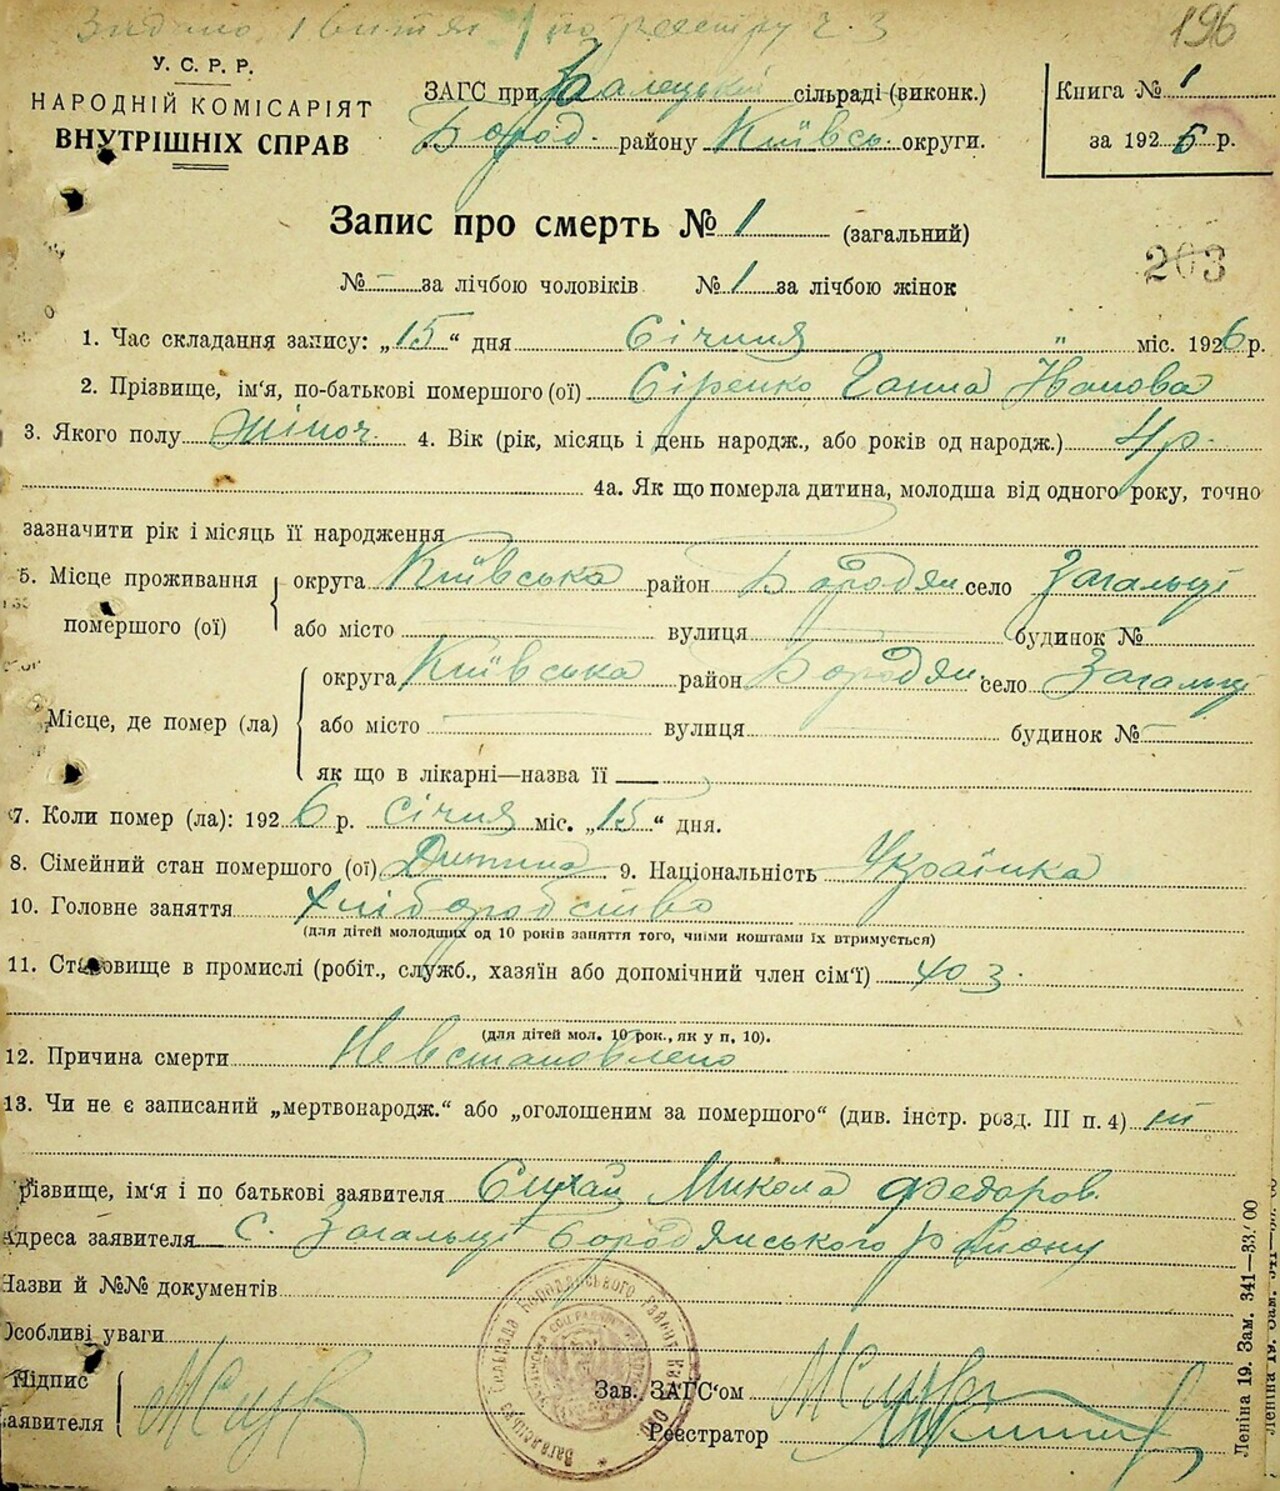 Видано 1 витяг по реєстру Ч. 3
196
У. С. Р. Р.
НАРОДНІЙ КОМІСАРІЯТ
ВНУТРІШНІХ СПРАВ
ЗАГС при сільраді (виконк.)
Бород. району Київсь. округи.
Книга № 1
за 1926 р.
Запис про смерть № 1 (загальний)
203
№ – за лічбою чоловіків № 1 за лічбою жінок
1. Час складання запису: „15“ дня Січня " міс. 1926 р.
2. Прізвище, ім'я, по-батькові помершого (ої) Сіренко Ганна Іванова
3. Якого полу жіноч. 4. Вік (рік, місяць і день народж., або років од народж.) 4 р.
4а. Як що померла дитина, молодша від одного року, точно
зазначити рік і місяць її народження
5. Місце проживання помершого (ої) округа Київська район Бородян село Загальці
або місто вулиця будинок №
Місце, де помер (ла) округа Київська район Бородян. село Загальці
або місто вулиця будинок № –
як що в лікарні—назва її
7. Коли помер (ла): 1926 р. Січня міс. „15“ дня.
8. Сімейний стан помершого (ої) Дитина 9. Національність Українка
10. Головне заняття Хліборобство
(для дітей молодших од 10 років заняття того, чиїми коштами їх втримується)
11. Становище в промислі (робіт., служб., хазяїн або допомічний член сім'ї) хоз.
(для дітей мол. 10 рок., як у п. 10).
12. Причина смерти Невстановлено
13. Чи не є записаний „мертвонародж.“ або „оголошеним за помершого“ (див. інстр. розд. III п. 4) ні
різвище, ім'я і по батькові заявителя Микола Федоров.
Адреса заявителя с. Загальці Бородянського району
Назви й №№ документів
Особливі уваги
Підпис заявителя
Зав. ЗАГС'ом
Реєстратор
Леніна 19. Зам. 341—33.